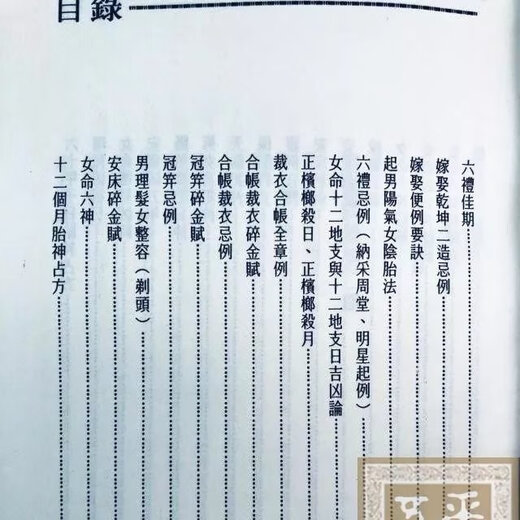 目錄
六禮佳期
嫁娶乾坤二造忌例
嫁娶便例要訣
起男陽氣女陰胎法
六禮忌例（納采周堂、明星起例）
女命十二地支與十二地支日吉凶論
正檳榔殺日、正檳榔殺月
裁衣合帳全章例
合帳裁衣碎金賦
合帳裁衣忌例
冠笄碎金賦
冠笄忌例
男理髮女整容（剃頭）
安床碎金賦
女命六神
十二個月胎神占方